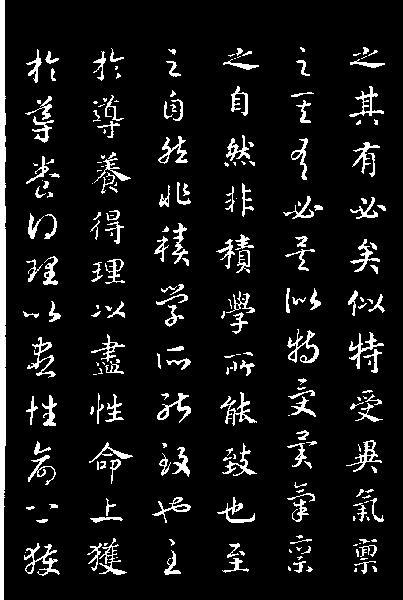 之其有必矣似特受異氣稟
之其有必矣似特受異氣稟
之自然非積學所能致也至
之自然非積學所能致也至
於導養得理以盡性命上獲
於導養得理以盡性命上獲